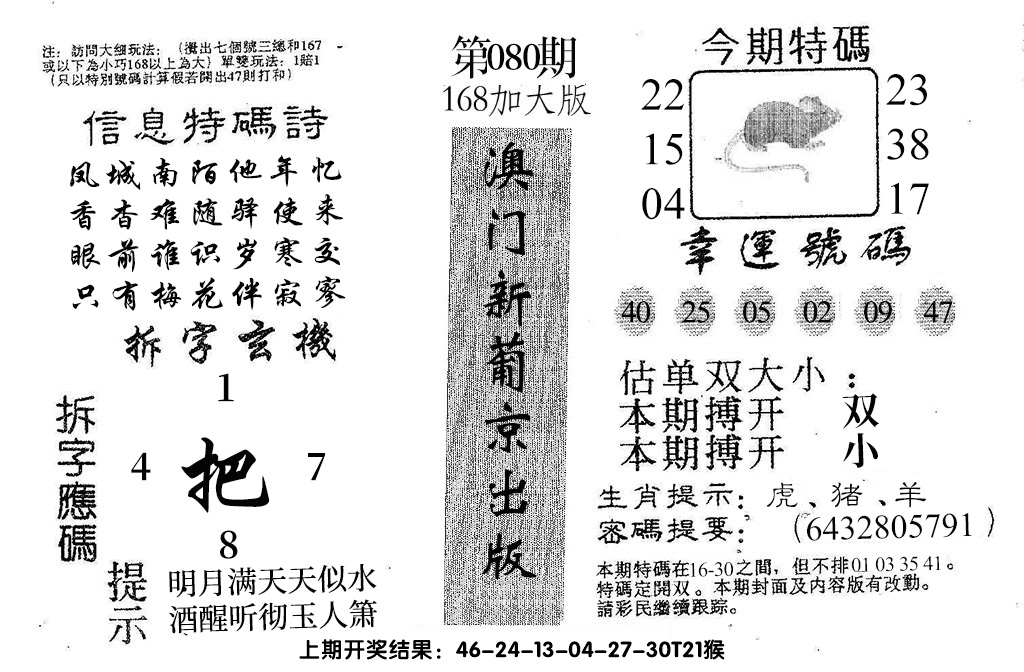 注：訪問大细玩法：(攪出七個號三總和167
或以下為小巧168以上為大）單雙玩法：1賠1
（只以特別號碼計算假若開出47則打和）
信息特碼詩
凤城南陌他年忆
香杳难随驿使来
眼前谁识岁寒交
只有梅花伴寂寥
拆字玄機
拆字應碼
1
4
把
7
8
提示
明月满天天似水
酒醒听彻玉人箫
第080期
168加大版
澳门新葡京出版
今期特碼
22
15
04
23
38
17
幸運號碼
40 25 05 02 09 47
估单双大小：
本期搏开 双
本期搏开 小
生肖提示：虎、猪、羊
密碼提要：（6432805791）
本期特碼在16-30之間，但不排01 03 35 41。
特碼定開双。本期封面及内容版有改動。
請彩民繼續跟踪。
上期开奖结果：46-24-13-04-27-30T21猴